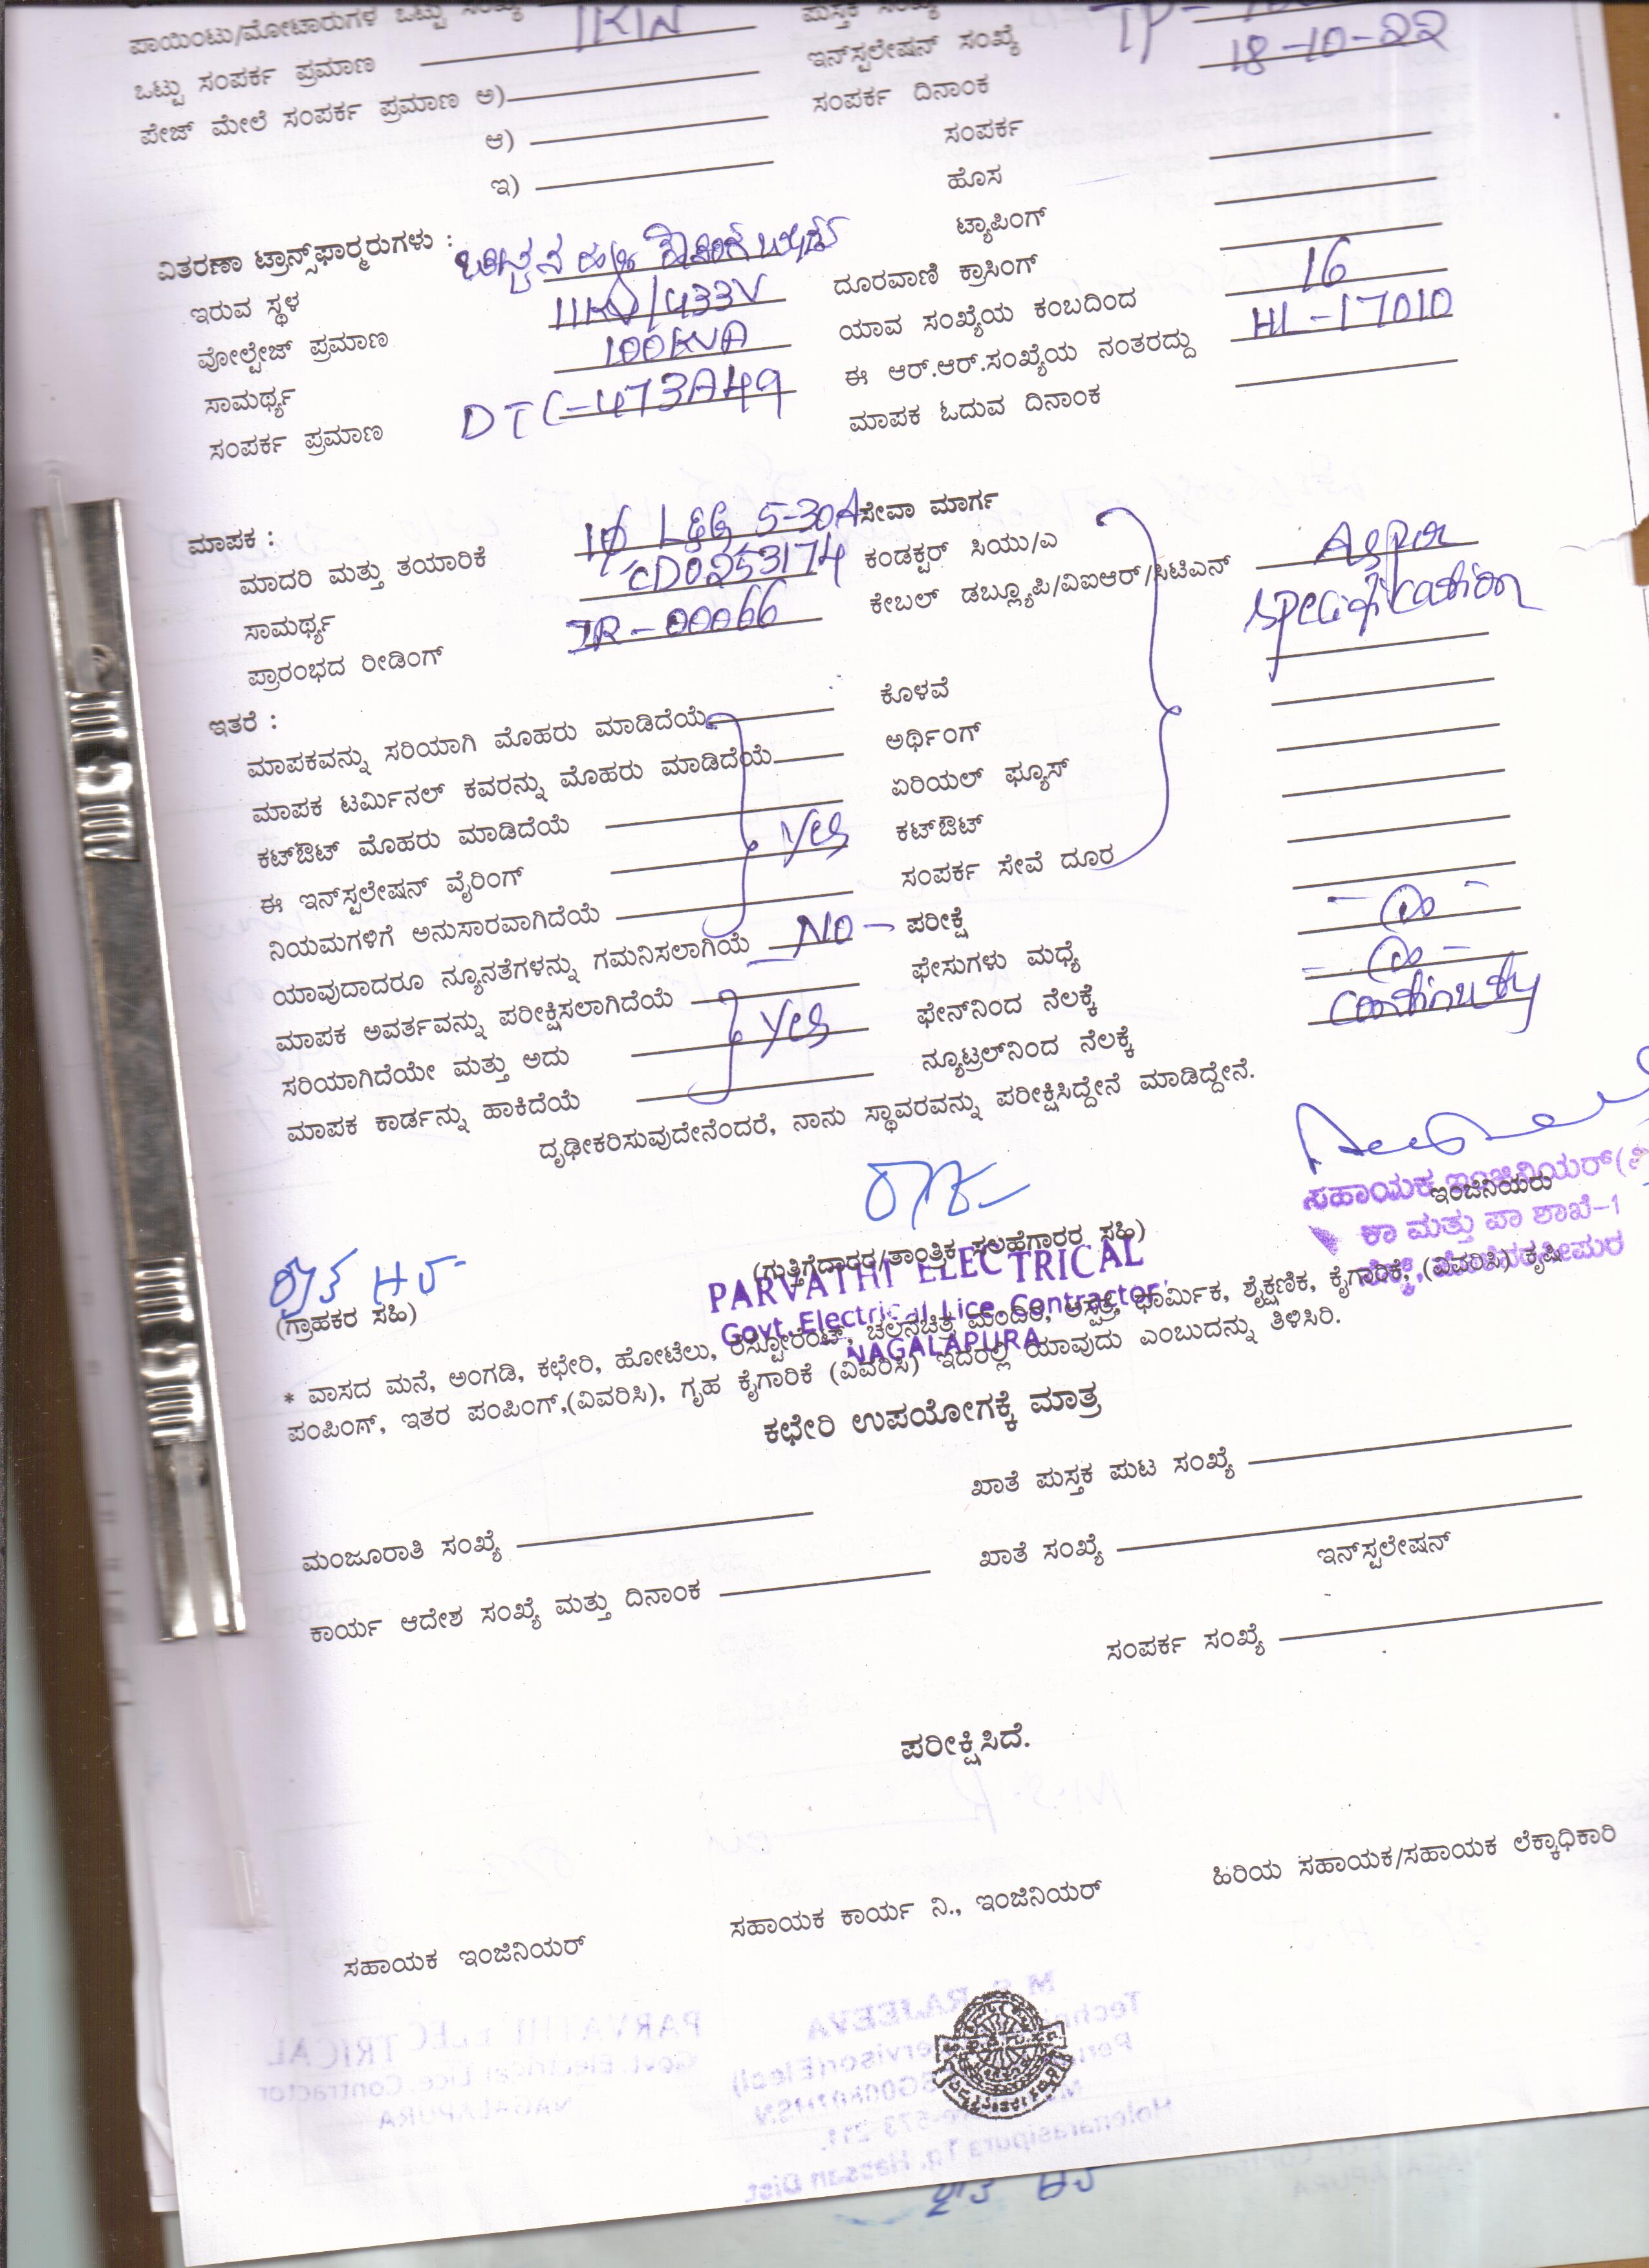 ಪಾಯಿಂಟು/ಮೋಟಾರುಗಳ ಒಟ್ಟು ಸಂಖ್ಯೆ
ಒಟ್ಟು ಸಂಪರ್ಕ ಪ್ರಮಾಣ 1KW
ಪೇಜ್ ಮೇಲೆ ಸಂಪರ್ಕ ಪ್ರಮಾಣ ಅ)
ಆ)
ಇ)
ಪುಸ್ತಕ ಸಂಖ್ಯೆ
ಇನ್‌ಸ್ಟಲೇಷನ್ ಸಂಖ್ಯೆ TP-
ಸಂಪರ್ಕ ದಿನಾಂಕ 18-10-22
ಸಂಪರ್ಕ
ಹೊಸ
ಟ್ಯಾಪಿಂಗ್
ದೂರವಾಣಿ ಕ್ರಾಸಿಂಗ್
ಯಾವ ಸಂಖ್ಯೆಯ ಕಂಬದಿಂದ 16
ಈ ಆರ್.ಆರ್.ಸಂಖ್ಯೆಯ ನಂತರದ್ದು HL-17010
ಮಾಪಕ ಓದುವ ದಿನಾಂಕ
ವಿತರಣಾ ಟ್ರಾನ್ಸ್‌ಫಾರ್ಮರುಗಳು :
ಇರುವ ಸ್ಥಳ
ವೋಲ್ಟೇಜ್ ಪ್ರಮಾಣ 11KV/433V
ಸಾಮರ್ಥ್ಯ 100KVA
ಸಂಪರ್ಕ ಪ್ರಮಾಣ DTC-473A49
ಮಾಪಕ :
ಮಾದರಿ ಮತ್ತು ತಯಾರಿಕೆ 1Ø L&G 5-30A
ಸಾಮರ್ಥ್ಯ CD0253174
ಪ್ರಾರಂಭದ ರೀಡಿಂಗ್ IR-00066
ಸೇವಾ ಮಾರ್ಗ
ಕಂಡಕ್ಟರ್ ಸಿಯು/ಎ As per
ಕೇಬಲ್ ಡಬ್ಲ್ಯೂಪಿ/ವಿಐಆರ್/ಸಿಟಿಎನ್ specification
ಇತರೆ :
ಮಾಪಕವನ್ನು ಸರಿಯಾಗಿ ಮೊಹರು ಮಾಡಿದೆಯೆ
ಮಾಪಕ ಟರ್ಮಿನಲ್ ಕವರನ್ನು ಮೊಹರು ಮಾಡಿದೆಯೆ
ಕಟ್‌ಔಟ್ ಮೊಹರು ಮಾಡಿದೆಯೆ
ಈ ಇನ್‌ಸ್ಟಲೇಷನ್ ವೈರಿಂಗ್ Yes
ನಿಯಮಗಳಿಗೆ ಅನುಸಾರವಾಗಿದೆಯೆ
ಯಾವುದಾದರೂ ನ್ಯೂನತೆಗಳನ್ನು ಗಮನಿಸಲಾಗಿಯೆ NO
ಮಾಪಕ ಅವರ್ತವನ್ನು ಪರೀಕ್ಷಿಸಲಾಗಿದೆಯೆ
ಸರಿಯಾಗಿದೆಯೇ ಮತ್ತು ಅದು Yes
ಮಾಪಕ ಕಾರ್ಡನ್ನು ಹಾಕಿದೆಯೆ
ಕೊಳವೆ
ಅರ್ಥಿಂಗ್
ಏರಿಯಲ್ ಫ್ಯೂಸ್
ಕಟ್‌ಔಟ್
ಸಂಪರ್ಕ ಸೇವೆ ದೂರ
ಪರೀಕ್ಷೆ
ಫೇಸುಗಳು ಮಧ್ಯೆ
ಫೇನ್‌ನಿಂದ ನೆಲಕ್ಕೆ
ನ್ಯೂಟ್ರಲ್‌ನಿಂದ ನೆಲಕ್ಕೆ continuty
ದೃಢೀಕರಿಸುವುದೇನೆಂದರೆ, ನಾನು ಸ್ಥಾವರವನ್ನು ಪರೀಕ್ಷಿಸಿದ್ದೇನೆ ಮಾಡಿದ್ದೇನೆ.
ಸಹಾಯಕ ಇಂಜಿನಿಯರ್
ಇಂಜಿನಿಯರು
ಕಾ ಮತ್ತು ಪಾ ಶಾಖೆ-1
(ಗುತ್ತಿಗೆದಾರರ/ತಾಂತ್ರಿಕ ಸಲಹೆಗಾರರ ಸಹಿ)
PARVATHI ELECTRICAL
Govt. Electrical Lice. Contractor
NAGALAPURA
(ಗ್ರಾಹಕರ ಸಹಿ)
* ವಾಸದ ಮನೆ, ಅಂಗಡಿ, ಕಛೇರಿ, ಹೋಟೆಲು, ರೆಸ್ಟೋರೆಂಟ್, ಚಲನಚಿತ್ರ ಮಂದಿರ, ಆಸ್ಪತ್ರೆ, ಧಾರ್ಮಿಕ, ಶೈಕ್ಷಣಿಕ, ಕೈಗಾರಿಕೆ, (ವಿವರಿಸಿ) ಕೃಷಿ
ಪಂಪಿಂಗ್, ಇತರ ಪಂಪಿಂಗ್,(ವಿವರಿಸಿ), ಗೃಹ ಕೈಗಾರಿಕೆ (ವಿವರಿಸಿ) ಇದರಲ್ಲಿ ಯಾವುದು ಎಂಬುದನ್ನು ತಿಳಿಸಿರಿ.
ಕಛೇರಿ ಉಪಯೋಗಕ್ಕೆ ಮಾತ್ರ
ಖಾತೆ ಪುಸ್ತಕ ಪುಟ ಸಂಖ್ಯೆ
ಮಂಜೂರಾತಿ ಸಂಖ್ಯೆ
ಖಾತೆ ಸಂಖ್ಯೆ
ಇನ್‌ಸ್ಟಲೇಷನ್
ಕಾರ್ಯ ಆದೇಶ ಸಂಖ್ಯೆ ಮತ್ತು ದಿನಾಂಕ
ಸಂಪರ್ಕ ಸಂಖ್ಯೆ
ಪರೀಕ್ಷಿಸಿದೆ.
ಸಹಾಯಕ ಇಂಜಿನಿಯರ್
ಸಹಾಯಕ ಕಾರ್ಯ ನಿ., ಇಂಜಿನಿಯರ್
ಹಿರಿಯ ಸಹಾಯಕ/ಸಹಾಯಕ ಲೆಕ್ಕಾಧಿಕಾರಿ